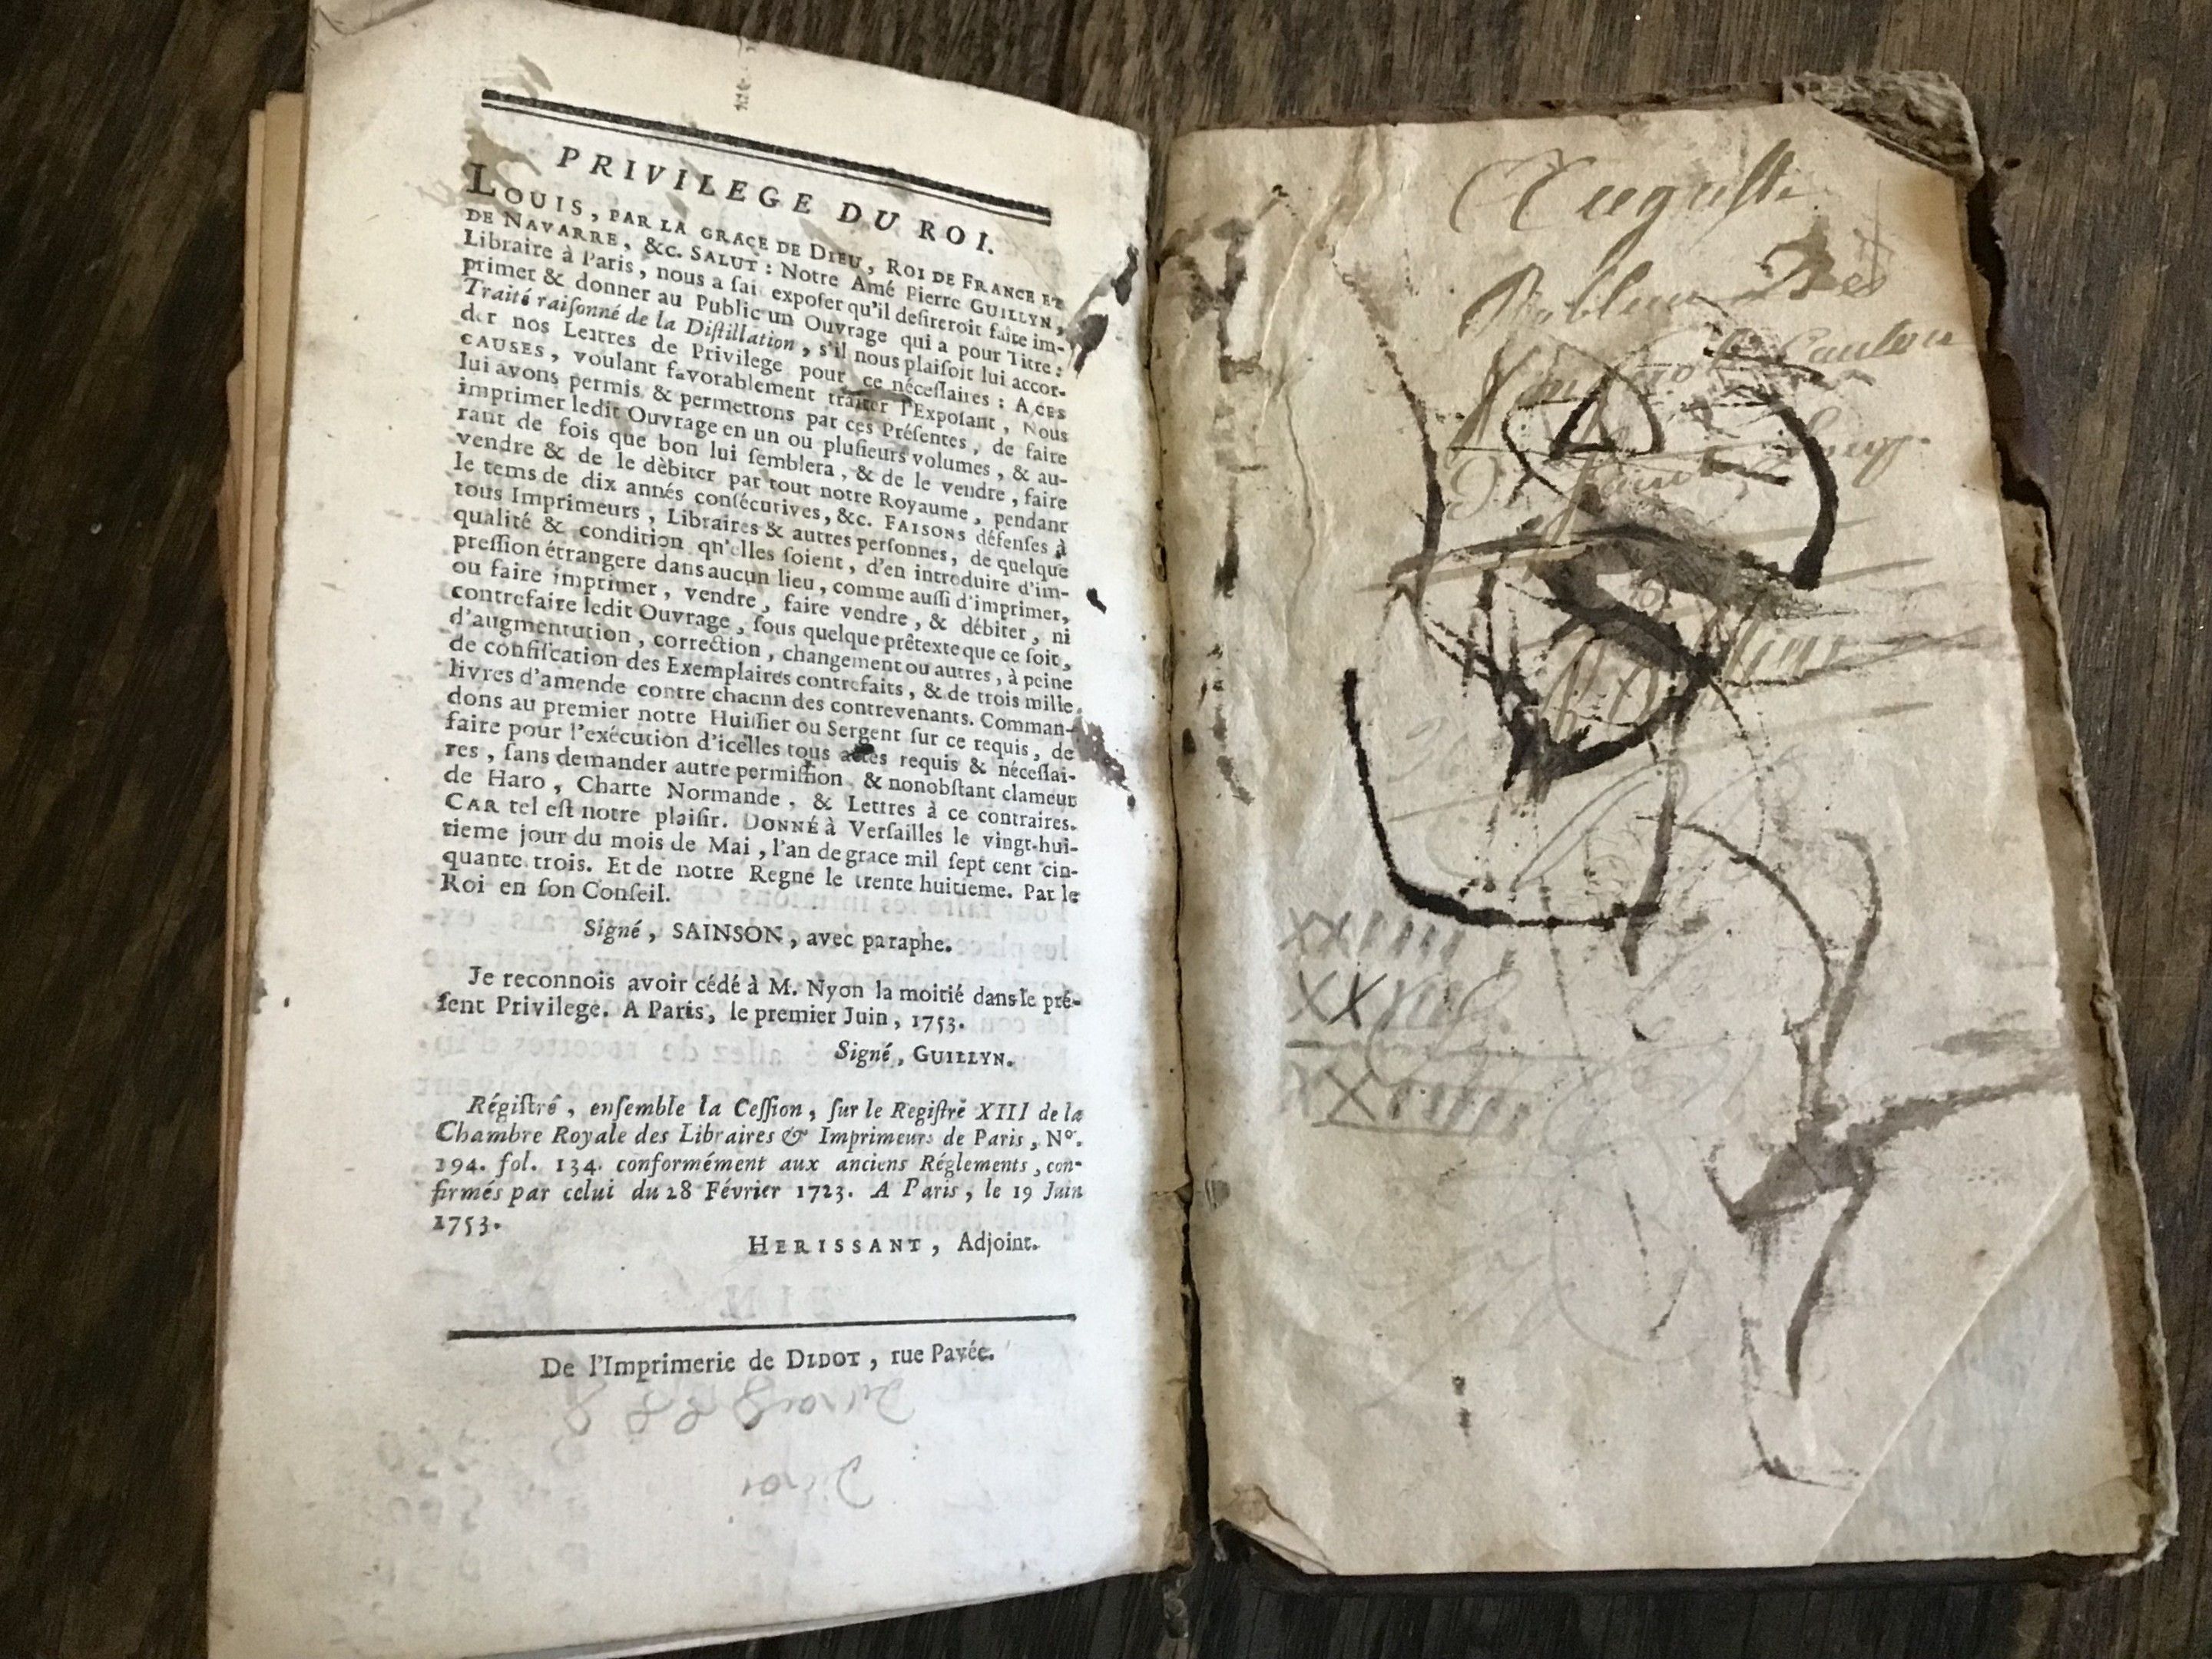 PRIVILEGE DU ROI.
LOUIS, PAR LA GRACE DE DIEU, ROI DE FRANCE ET
DE NAVARRE, &c. SALUT: Notre Amé Pierre GUILLYN,
Libraire à Paris, nous a fai expoſer qu'il deſireroit faire im-
primer & donner au Public un Ouvrage qui a pour Titre:
Traité raiſonné de la Diſtillation, s'il nous plaiſoit lui accor-
der nos Lettres de Privilege pour ce néceſſaires: A CES
CAUSES, voulant favorablement traiter l'Expoſant, Nous
lui avons permis & permettons par ces Préſentes, de faire
imprimer ledit Ouvrage en un ou pluſieurs volumes, & au-
tant de fois que bon lui ſemblera, & de le vendre, faire
vendre & de le dèbiter par tout notre Royaume, pendant
le tems de dix annés conſécutives, &c. FAISONS défenſes à
tous Imprimeurs, Libraires & autres perſonnes, de quelque
qualité & condition qu'elles ſoient, d'en introduire d'im-
preſſion étrangere dans aucun lieu, comme auſſi d'imprimer,
ou faire imprimer, vendre, faire vendre, & débiter, ni
contrefaire ledit Ouvrage, ſous quelque prêtexte que ce ſoit,
d'augmentution, correction, changement ou autres, à peine
de confiſcation des Exemplaires contrefaits, & de trois mille
livres d'amende contre chacnn des contrevenants. Comman-
dons au premier notre Huiſſier ou Sergent ſur ce requis, de
faire pour l'exécution d'icelles tous actes requis & néceſſai-
res, ſans demander autre permiſſion & nonobſtant clameur
de Haro, Charte Normande, & Lettres à ce contraires.
CAR tel eſt notre plaiſir. DONNÉ à Verſailles le vingt-hui-
tieme jour du mois de Mai, l'an de grace mil ſept cent cin-
quante trois. Et de notre Regne le trente huitieme. Par le
Roi en ſon Conſeil.
Signé, SAINSON, avec paraphe.
Je reconnois avoir cédé à M. Nyon la moitié dans le pré-
ſent Privilege. A Paris, le premier Juin, 1753.
Signé, GUILLYN.
Régiſtré, enſemble la Ceſſion, ſur le Regiſtre XIII de la
Chambre Royale des Libraires & Imprimeurs de Paris, N°.
194. fol. 134. conformément aux anciens Réglements, con-
firmés par celui du 28 Février 1723. A Paris, le 19 Juin
1753.
HERISSANT, Adjoint.
De l'Imprimerie de DIDOT, rue Pavée.
Auguste